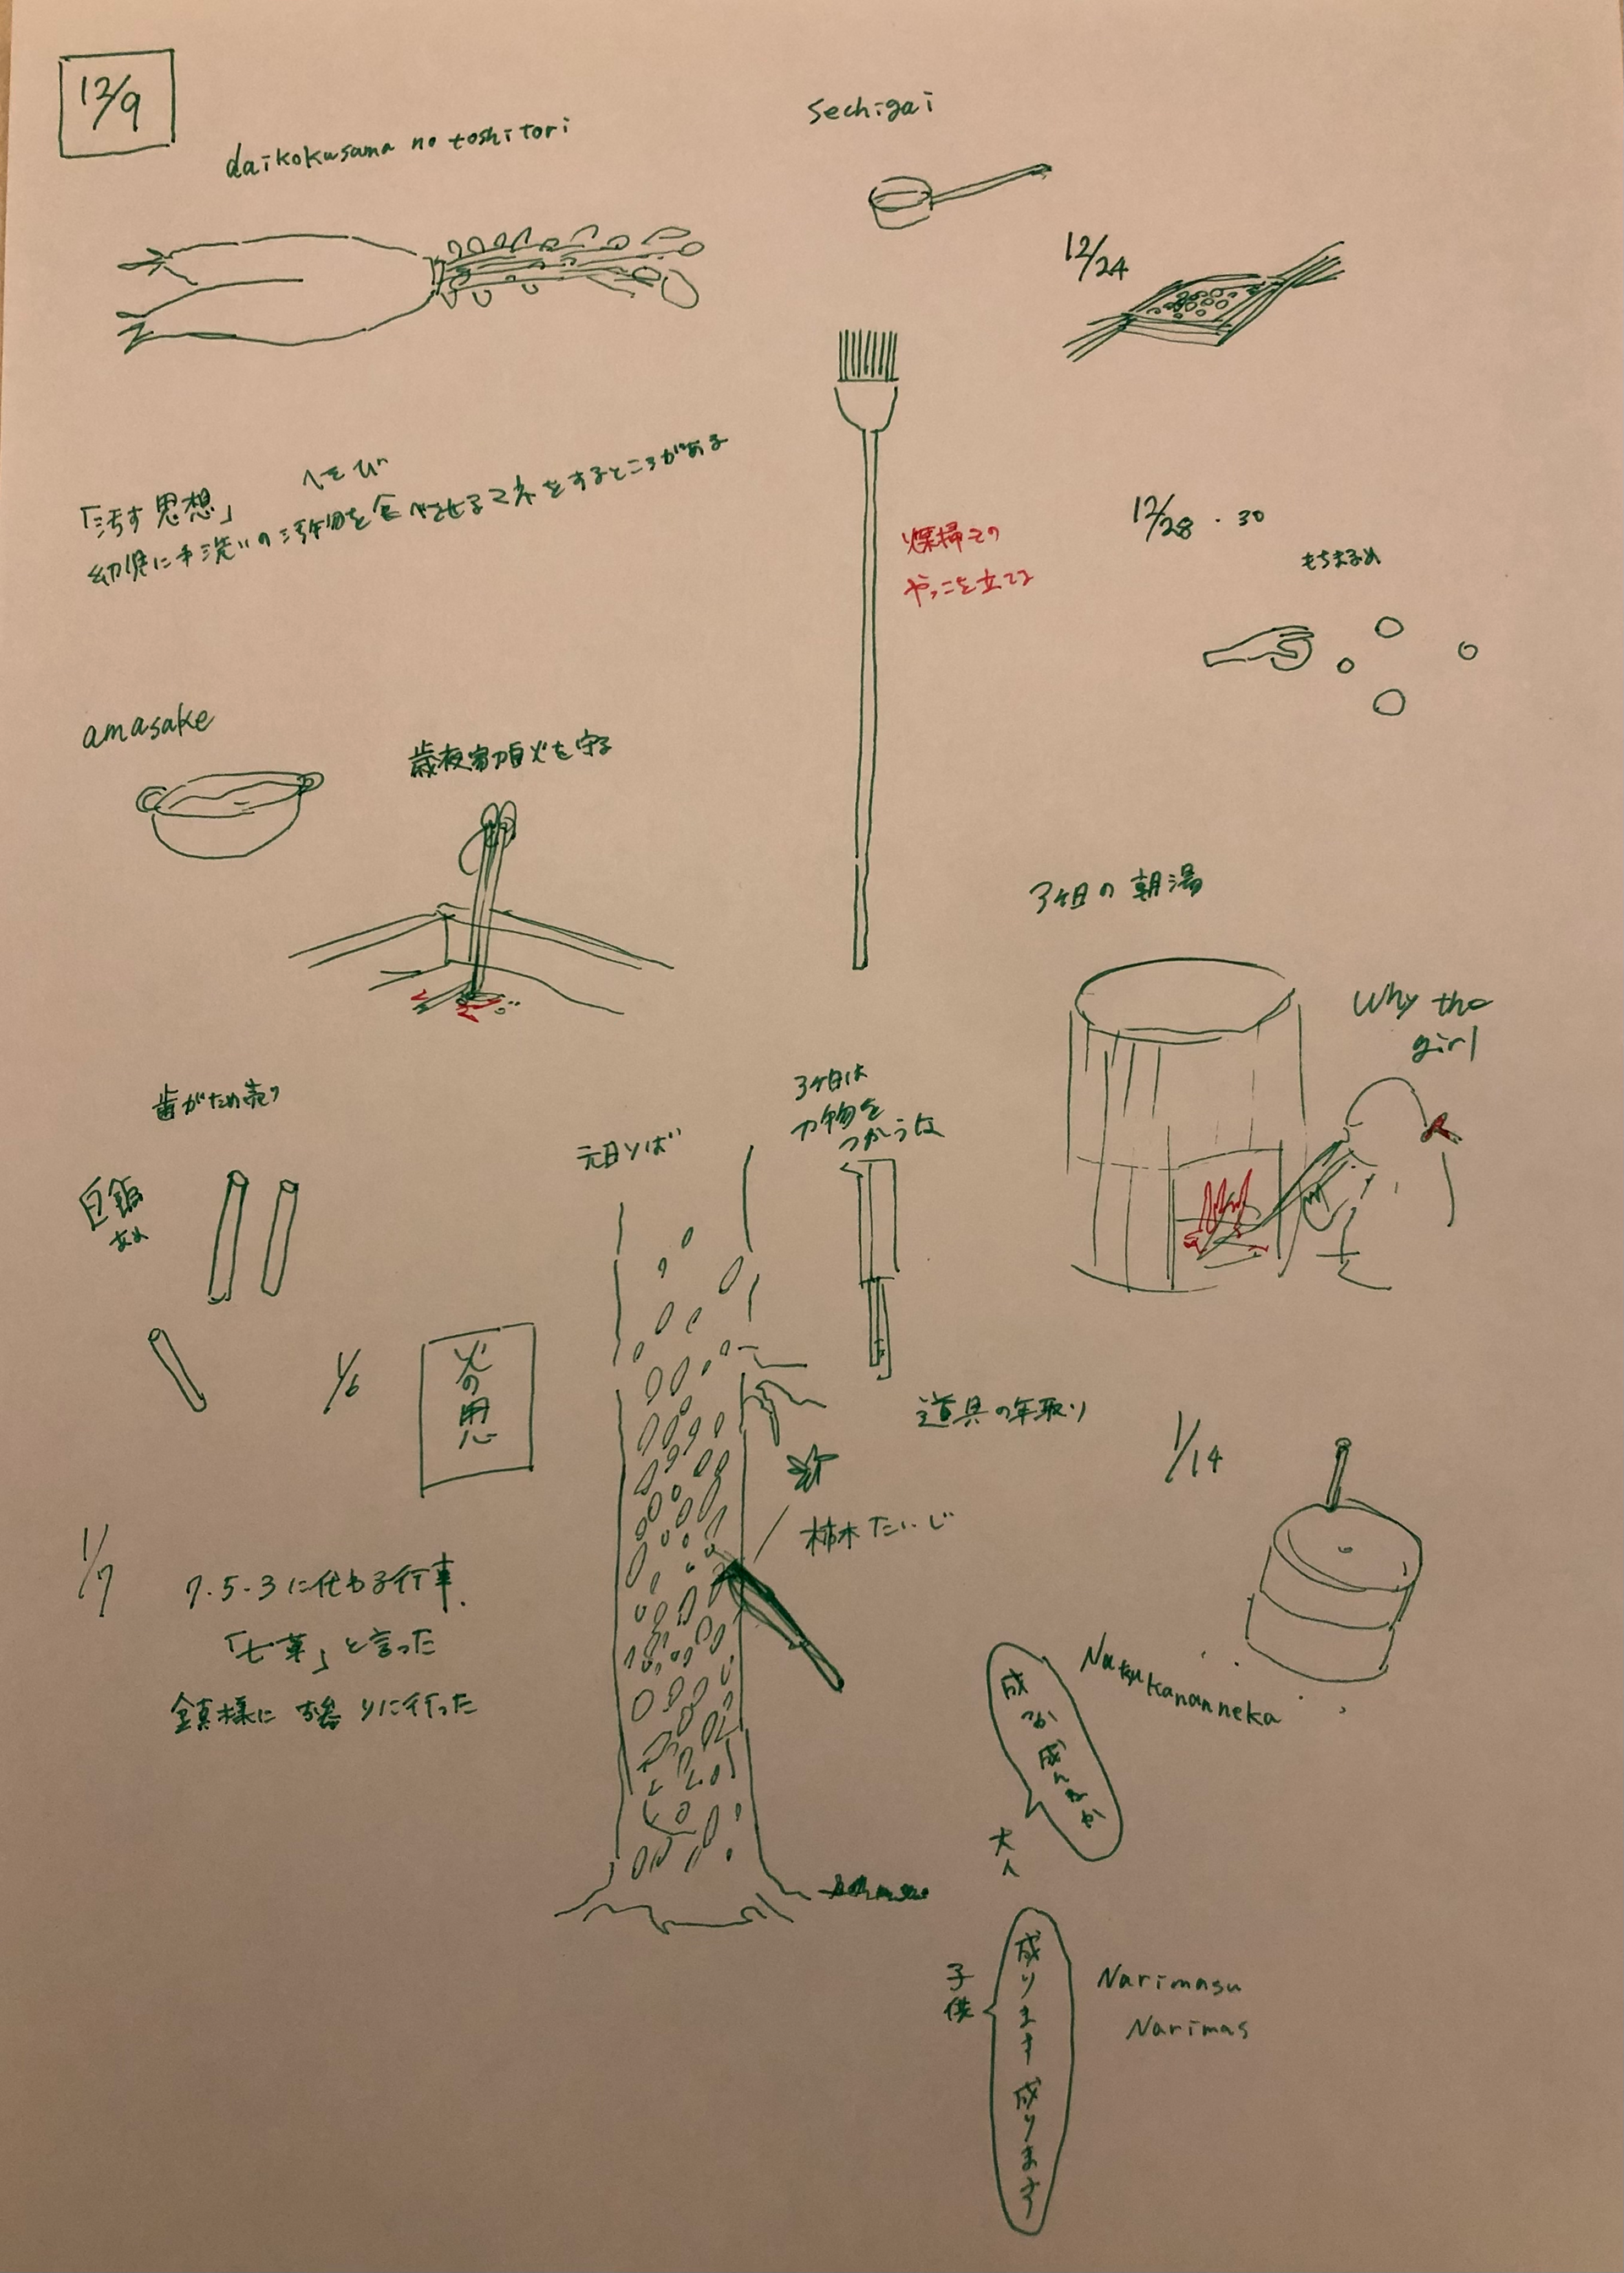 12/9
daikokusama no toshitori
sechigai
12/24
「汚す思想」
へそび
幼児に手洗いの汚物を食べさせるマネをするところがある
煤掃きの
やっこを立てる
12/28・30
もちまるめ
amasake
火を守る
3ヶ日の朝湯
Why the
girl
歯がため売り
白飴
あめ
元日りば
3ヶ日は
刃物を
つかうな
1/6
火の思
道具の年取り
1/14
柿木たいじ
1/7
7.5.3に代わる行事.
「七草」と言った
鎮様に 参りに行った
Narukananneka
成るか成んねか
大人
子供
成ります成ります
Narimasu
Narimas